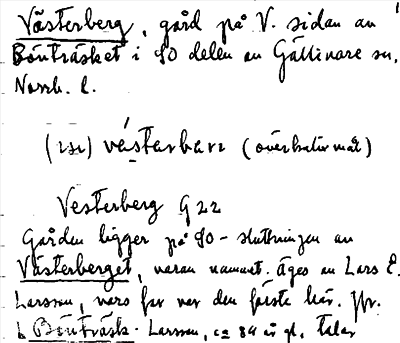 Västerberg, gård på V. sidan av
Bönträsket i SO delen av Gällivare sn,
Norrb. l.
västarbarr (överkalixmål)
Vesterberg G 22
Gården ligger på SO-sluttningen av
Västerberget, varav namnet. Äges av Lars E.
Larsson, vars far var den förste här. Jfr.
Bönträsk. Larsson, ca 84 år gl. talar